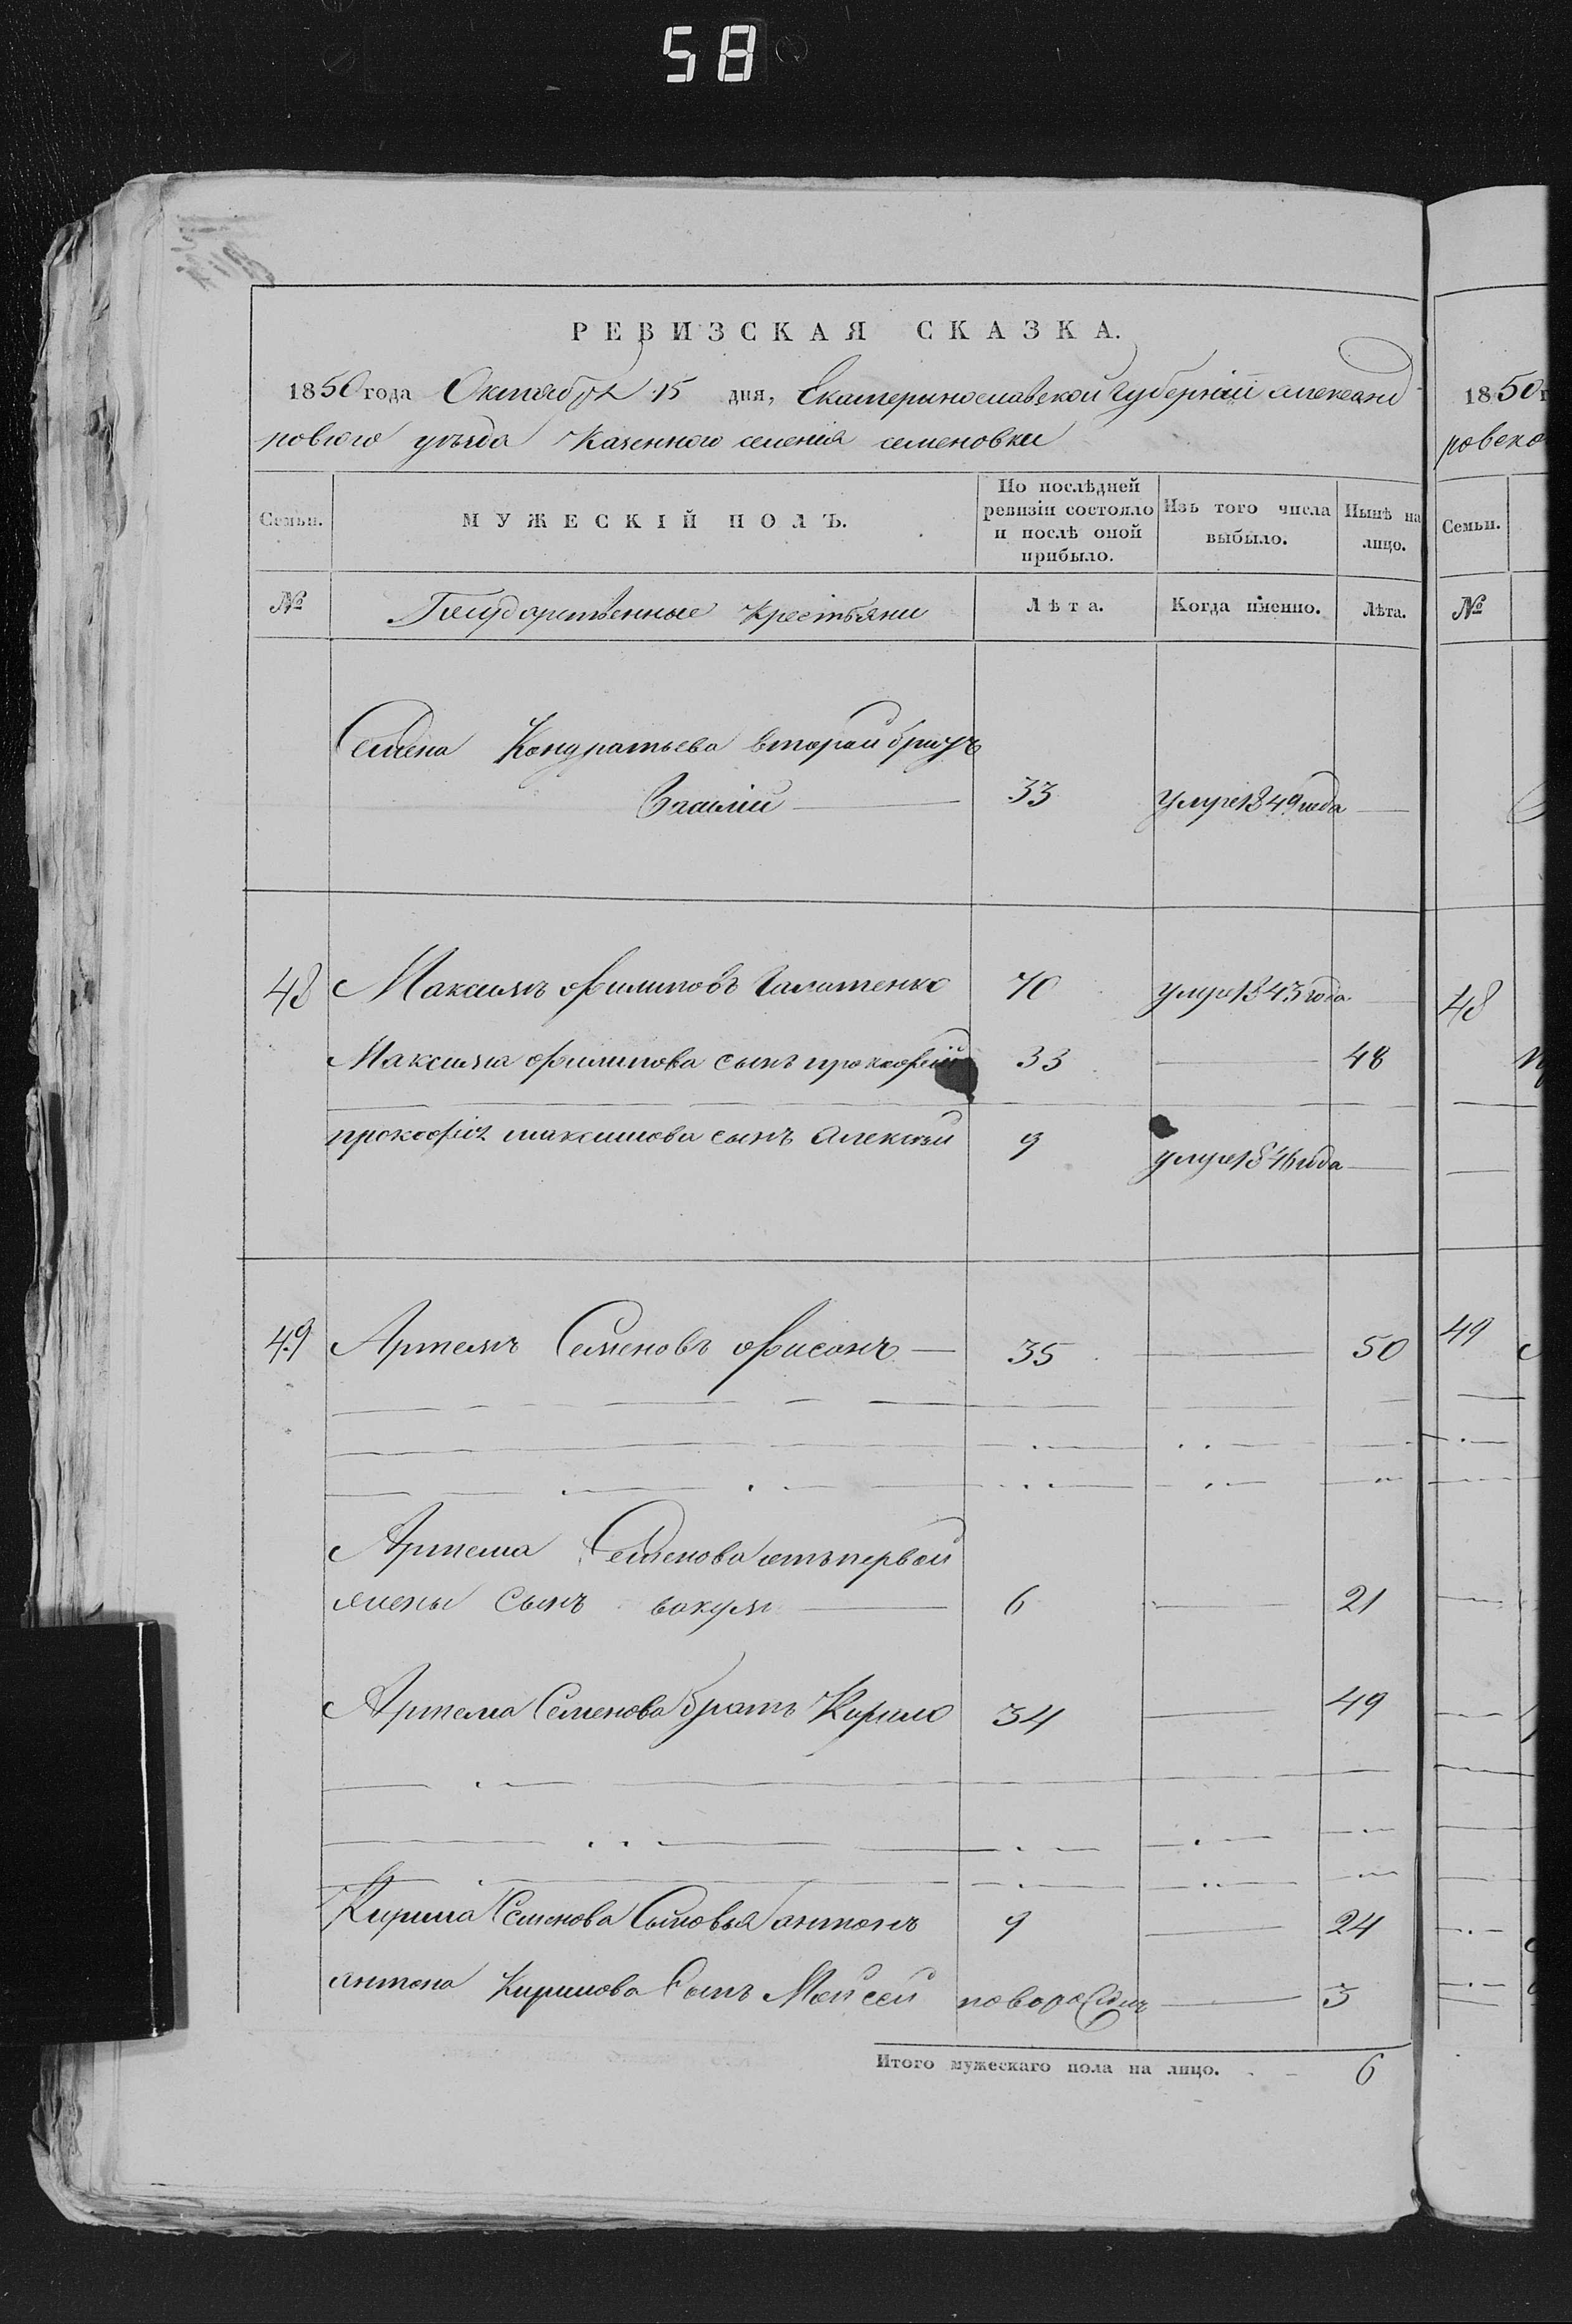 58
РЕВИЗСКАЯ СКАЗКА.
1850 года Октября 15 дня, Екатеринославской губернии александ
ровского уѣзда Казенного селенія семеновки
Семьи.
МУЖЕСКІЙ ПОЛЪ.
По послѣдней
ревизіи состояло
и послѣ оной
прибыло.
Изъ того числа
выбыло.
Нынѣ на
лицо.
№ Государственные крестьяни Лѣта. Когда именно. Лѣта.
Семена Кондратьева второй братъ
Василій 33 умре 1849 года
48 Максимъ Филиповъ Галатенко 70 умре 1843 года
Максима Филипова сынъ прокофій 33 48
прокофія максимова сынъ Алексѣй 9 умре 1846 года
49 Артемъ Семеновъ Фисонъ 35 50
Артема Семенова отъ первой
жены сынъ вакум 6 21
Артема Семенова братъ Кирило 34 49
Кирила Семенова Сыновья антонъ 9 24
антона Кирилова Сынъ Мойсей новорожден 3
Итого мужескаго пола на лицо. 6
1850 г
ровско
Семьи.
№
48
49